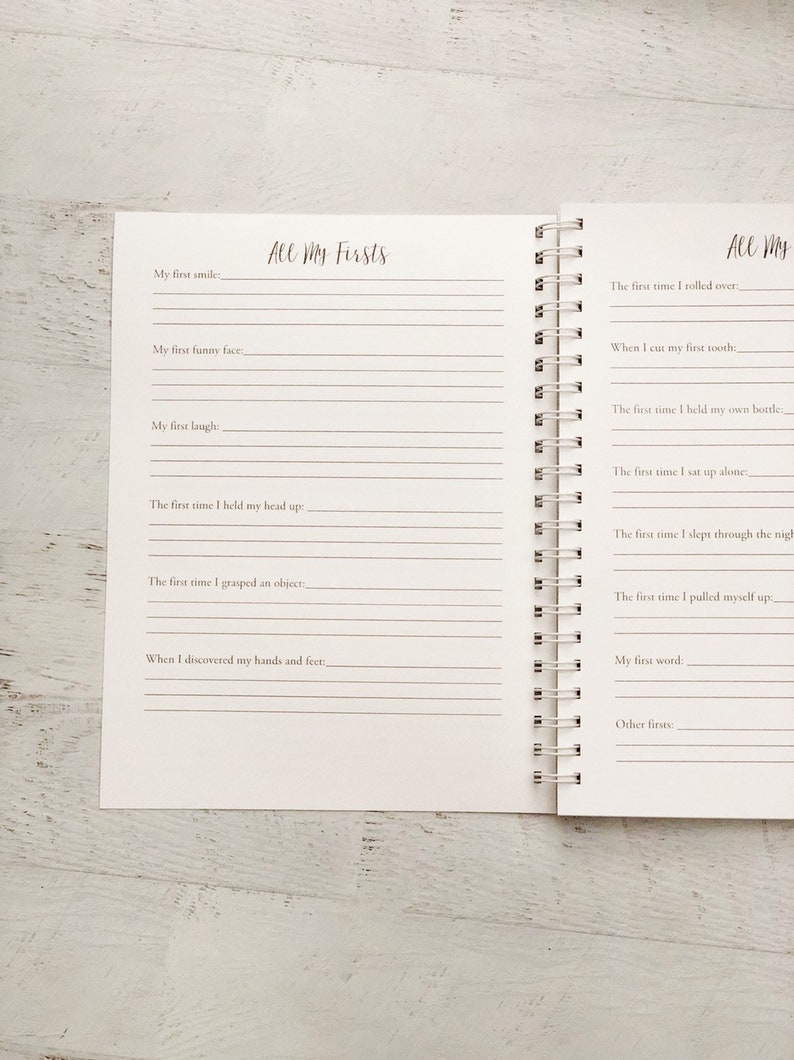 All My Firsts
My first smile:
My first funny face:
My first laugh:
The first time I held my head up:
The first time I grasped an object:
When I discovered my hands and feet:
All My
The first time I rolled over:
When I cut my first tooth:
The first time I held my own bottle:
The first time I sat up alone:
The first time I slept through the nigh
The first time I pulled myself up:
My first word:
Other firsts: